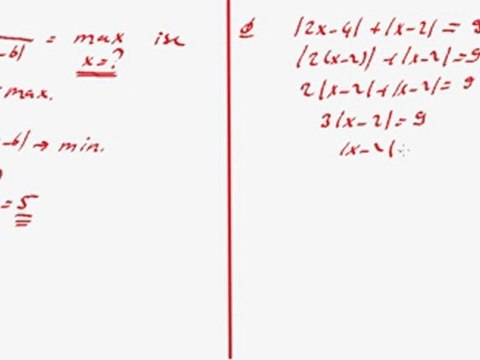 = max ise
-6|
x=?
max.
-6| → min.
= 5
|2x-4| + |x-2| = 9
|2(x-2)| + |x-2| = 9
2|x-2| + |x-2| = 9
3|x-2| = 9
|x-2| =